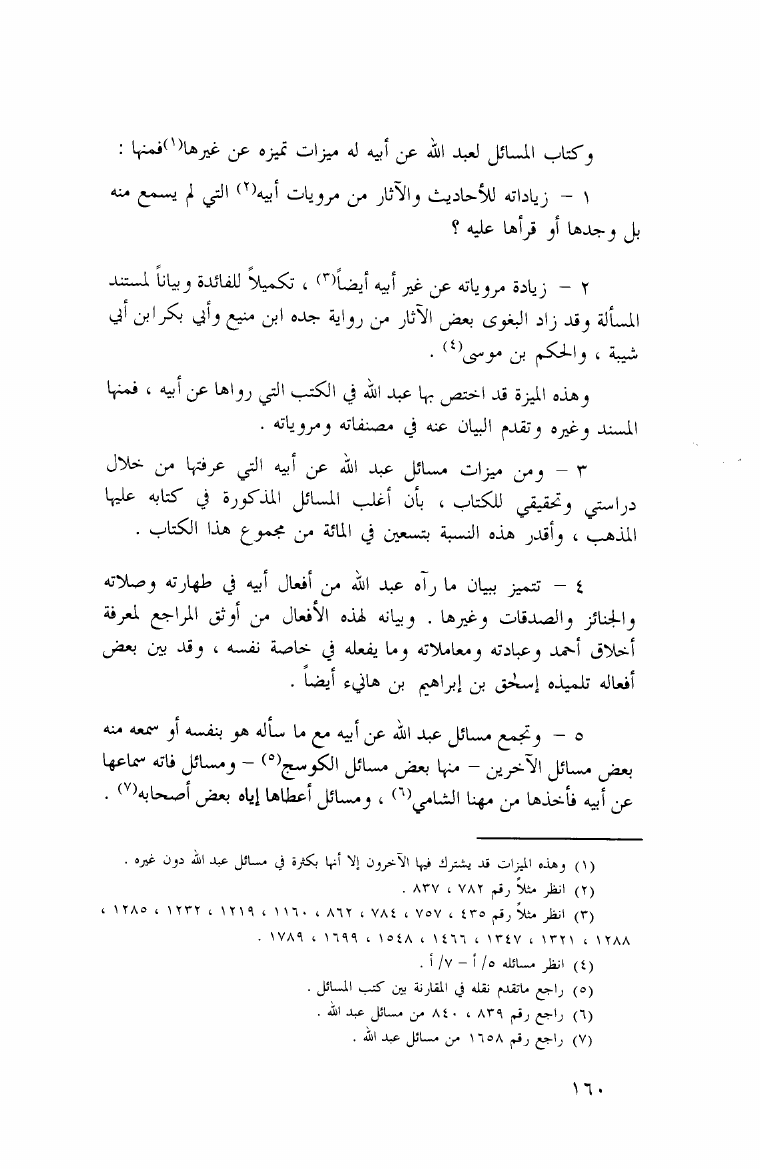 وكتاب المسائل لعبد الله عن أبيه له ميزات تميزه عن غيرها(١)فمنها :
١ – زياداته للأحاديث والآثار من مرويات أبيه(٢) التي لم يسمع منه
بل وجدها أو قرأها عليه ؟
٢ – زيادة مروياته عن غير أبيه أيضاً(٣) ، تكميلاً للفائدة وبياناً لمستند
المسألة وقد زاد البغوى بعض الآثار من رواية جده ابن منيع وأبي بكر ابن أبي
شيبة ، والحكم بن موسى(٤) .
وهذه الميزة قد اختص بها عبد الله في الكتب التي رواها عن أبيه ، فمنها
المسند وغيره وتقدم البيان عنه في مصنفاته ومروياته .
٣ – ومن ميزات مسائل عبد الله عن أبيه التي عرفتها من خلال
دراستي وتحقيقي للكتاب ، بأن أغلب المسائل المذكورة في كتابه عليها
المذهب ، وأقدر هذه النسبة بتسعين في المائة من مجموع هذا الكتاب .
٤ – تتميز ببيان ما رآه عبد الله من أفعال أبيه في طهارته وصلاته
والجنائز والصدقات وغيرها . وبيانه لهذه الأفعال من أوثق المراجع لمعرفة
أخلاق أحمد وعبادته ومعاملاته وما يفعله في خاصة نفسه ، وقد بين بعض
أفعاله تلميذه إسحٰق بن إبراهيم بن هانيء أيضاً .
٥ – وتجمع مسائل عبد الله عن أبيه مع ما سأله هو بنفسه أو سمعه منه
بعض مسائل الآخرين – منها بعض مسائل الكوسج(٥) – ومسائل فاته سماعها
عن أبيه فأخذها من مهنا الشامي(٦) ، ومسائل أعطاها إياه بعض أصحابه(٧) .
(١) وهذه الميزات قد يشترك فيها الآخرون إلا أنها بكثرة في مسائل عبد الله دون غيره .
(٢) انظر مثلاً رقم ٧٨٢ ، ٨٣٧ .
(٣) انظر مثلاً رقم ٤٣٥ ، ٧٥٧ ، ٧٨٤ ، ٨٦٢ ، ١١٦٠ ، ١٢١٩ ، ١٢٣٢ ، ١٢٨٥ ،
١٢٨٨ ، ١٣٢١ ، ١٣٤٧ ، ١٤٦٦ ، ١٥٤٨ ، ١٦٩٩ ، ١٧٨٩ .
(٤) انظر مسائله ٥/ أ – ٧/ أ .
(٥) راجع ماتقدم نقله في المقارنة بين كتب المسائل .
(٦) راجع رقم ٨٣٩ ، ٨٤٠ من مسائل عبد الله .
(٧) راجع رقم ١٦٥٨ من مسائل عبد الله .
١٦٠